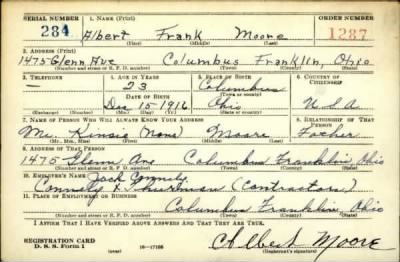 SERIAL NUMBER 1. NAME (Print) ORDER NUMBER
284 Albert Frank Moore 1287
(First) (Middle) (Last)
2. ADDRESS (Print)
1475 Glenn Ave Columbus Franklin, Ohio
(Number and street or R. F. D. number) (Town) (County) (State)
3. TELEPHONE 4. AGE IN YEARS 5. PLACE OF BIRTH 6. COUNTRY OF CITIZENSHIP
— 23 Columbus
DATE OF BIRTH (Town or county)
Dec 15-1916 Ohio U S A
(Exchange) (No.) (Mo.) (Day) (Yr.) (State or country)
7. NAME OF PERSON WHO WILL ALWAYS KNOW YOUR ADDRESS 8. RELATIONSHIP OF THAT PERSON
Mr. (None) Moore Father
(Mr., Mrs., Miss) (First) (Middle) (Last)
9. ADDRESS OF THAT PERSON
1475 Glenn Ave Columbus Franklin, Ohio
(Number and street or R. F. D. number) (Town) (County) (State)
10. EMPLOYER'S NAME Jack Connely
Connely & Thurman (Contractors)
11. PLACE OF EMPLOYMENT OR BUSINESS
Columbus Franklin, Ohio
(Number and street or R. F. D. number) (Town) (County) (State)
I AFFIRM THAT I HAVE VERIFIED ABOVE ANSWERS AND THAT THEY ARE TRUE.
REGISTRATION CARD
D. S. S. Form 1 16—17105 Albert Moore
(Registrant's signature)